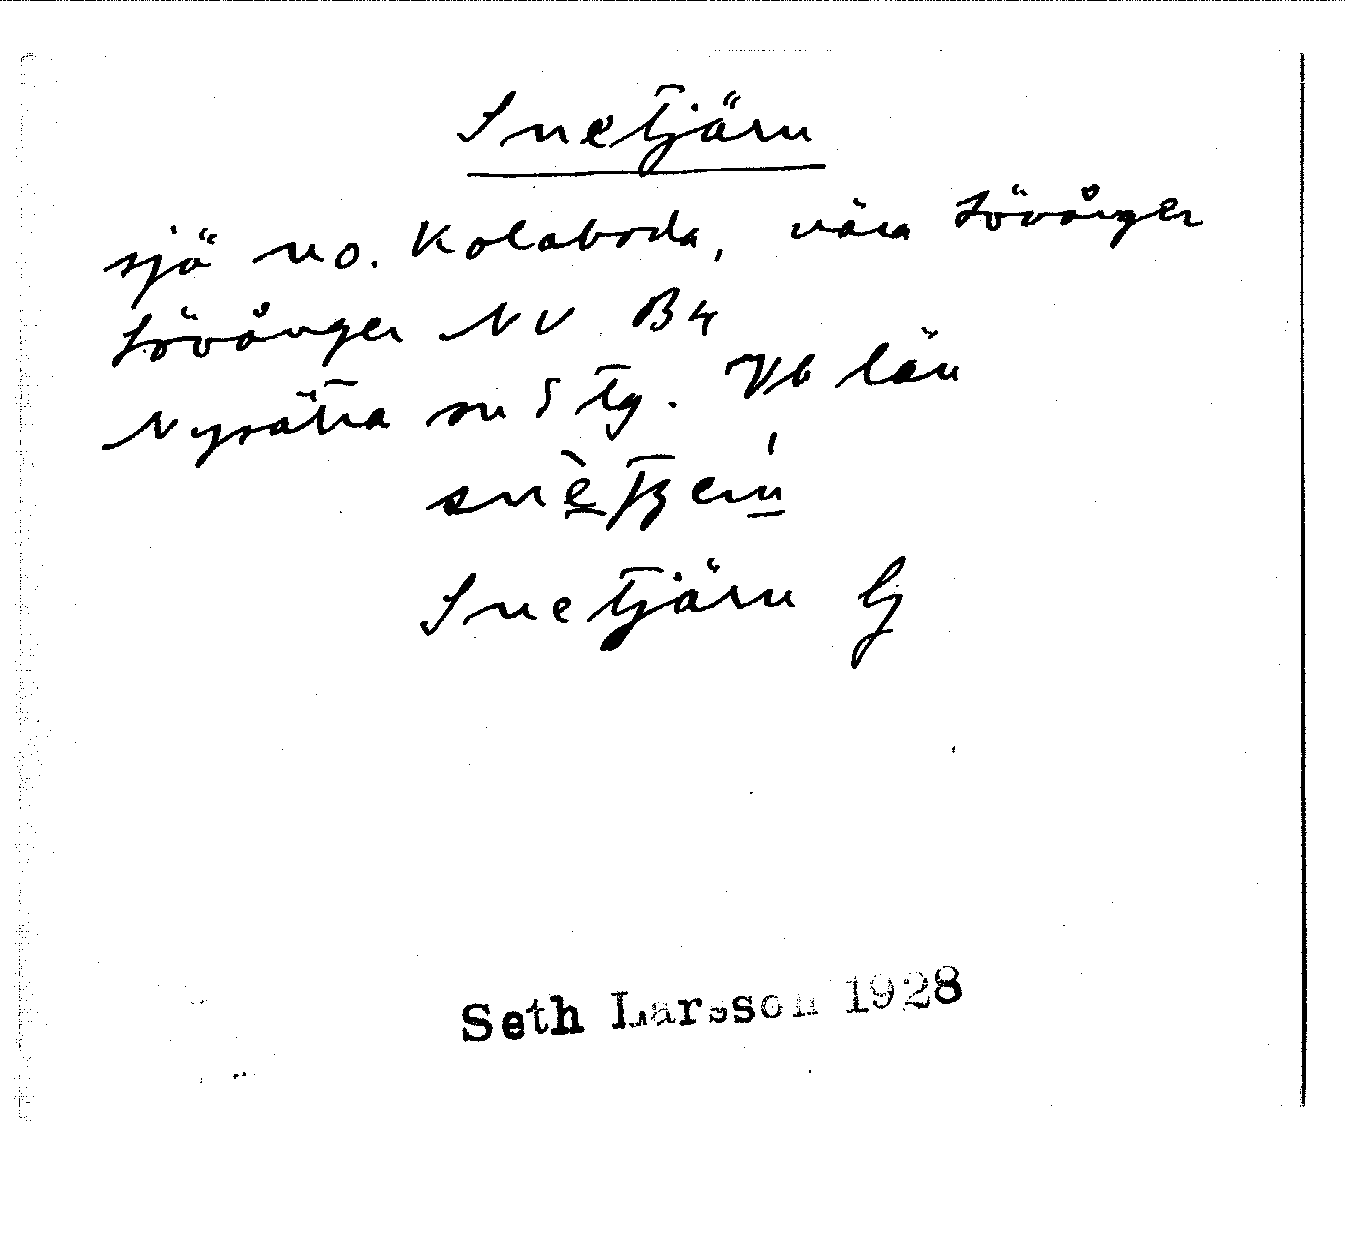 Snetjärn
sjö no. Kolaboda, nära Lövånger
Lövånger NV B4
Nysätra sn S tg. Vb län
Snetjärn G
Seth Larsson 1928